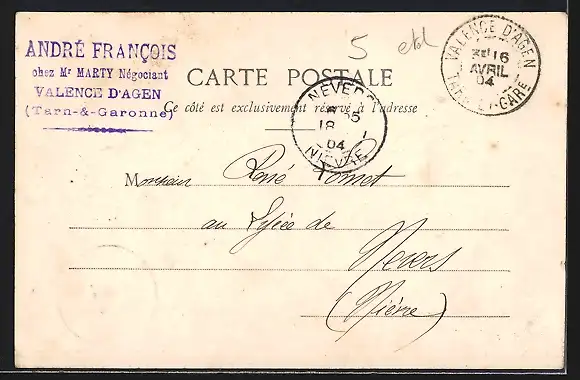 ANDRÉ FRANÇOIS
chez Mr MARTY Négociant
VALENCE D'AGEN
(Tarn-&-Garonne)
5
VALENCE D'AGEN
16
AVRIL
04
TARN-ET-GARNE
CARTE POSTALE
Ce côté est exclusivement réservé à l'adresse
NEVERS
18
04
NIEVRE
Monsieur René Pomet
au Lycée de
Nevers
(Nièvre)